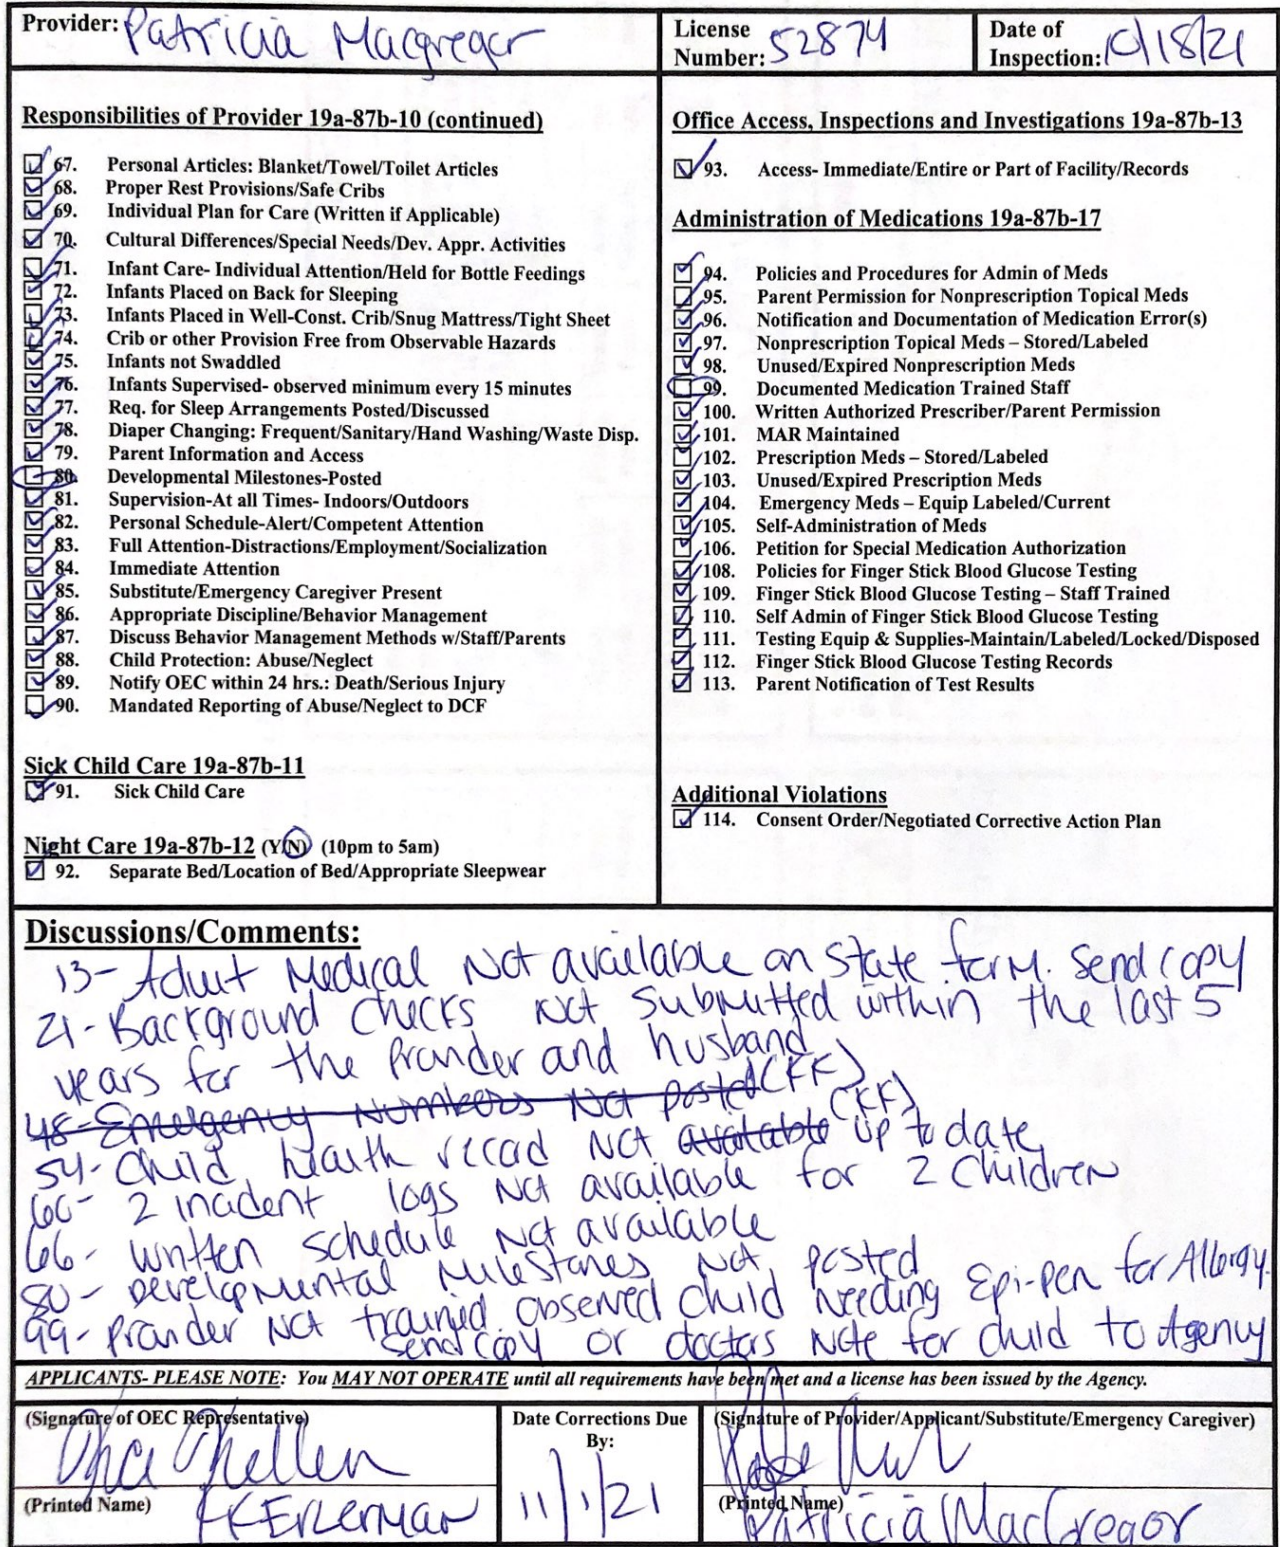 Provider: Patricia Macgregor
License Number: 52874
Date of Inspection: 10/18/21
Responsibilities of Provider 19a-87b-10 (continued)
67. Personal Articles: Blanket/Towel/Toilet Articles
68. Proper Rest Provisions/Safe Cribs
69. Individual Plan for Care (Written if Applicable)
70. Cultural Differences/Special Needs/Dev. Appr. Activities
71. Infant Care- Individual Attention/Held for Bottle Feedings
72. Infants Placed on Back for Sleeping
73. Infants Placed in Well-Const. Crib/Snug Mattress/Tight Sheet
74. Crib or other Provision Free from Observable Hazards
75. Infants not Swaddled
76. Infants Supervised- observed minimum every 15 minutes
77. Req. for Sleep Arrangements Posted/Discussed
78. Diaper Changing: Frequent/Sanitary/Hand Washing/Waste Disp.
79. Parent Information and Access
80. Developmental Milestones-Posted
81. Supervision-At all Times- Indoors/Outdoors
82. Personal Schedule-Alert/Competent Attention
83. Full Attention-Distractions/Employment/Socialization
84. Immediate Attention
85. Substitute/Emergency Caregiver Present
86. Appropriate Discipline/Behavior Management
87. Discuss Behavior Management Methods w/Staff/Parents
88. Child Protection: Abuse/Neglect
89. Notify OEC within 24 hrs.: Death/Serious Injury
90. Mandated Reporting of Abuse/Neglect to DCF
Sick Child Care 19a-87b-11
91. Sick Child Care
Night Care 19a-87b-12 (Y/N) (10pm to 5am)
92. Separate Bed/Location of Bed/Appropriate Sleepwear
Office Access, Inspections and Investigations 19a-87b-13
93. Access- Immediate/Entire or Part of Facility/Records
Administration of Medications 19a-87b-17
94. Policies and Procedures for Admin of Meds
95. Parent Permission for Nonprescription Topical Meds
96. Notification and Documentation of Medication Error(s)
97. Nonprescription Topical Meds – Stored/Labeled
98. Unused/Expired Nonprescription Meds
99. Documented Medication Trained Staff
100. Written Authorized Prescriber/Parent Permission
101. MAR Maintained
102. Prescription Meds – Stored/Labeled
103. Unused/Expired Prescription Meds
104. Emergency Meds – Equip Labeled/Current
105. Self-Administration of Meds
106. Petition for Special Medication Authorization
108. Policies for Finger Stick Blood Glucose Testing
109. Finger Stick Blood Glucose Testing – Staff Trained
110. Self Admin of Finger Stick Blood Glucose Testing
111. Testing Equip & Supplies-Maintain/Labeled/Locked/Disposed
112. Finger Stick Blood Glucose Testing Records
113. Parent Notification of Test Results
Additional Violations
114. Consent Order/Negotiated Corrective Action Plan
Discussions/Comments:
13- Adult Medical Not available on State form. Send copy
21- Background checks not submitted within the last 5
years for the Provider and husband
48- Emergency Numbers Not posted (KK)
54- Child health record not available (KK) up to date
60- 2 incident logs not available for 2 children
66- written schedule not available
80- Developmental Milestones Not posted
99- Provider Not trained. observed child needing Epi-pen for Allergy.
send copy or doctors Note for child to Agency
APPLICANTS- PLEASE NOTE: You MAY NOT OPERATE until all requirements have been met and a license has been issued by the Agency.
(Signature of OEC Representative)
(Printed Name)
Date Corrections Due By:
11/1/21
(Signature of Provider/Applicant/Substitute/Emergency Caregiver)
(Printed Name) Patricia MacGregor